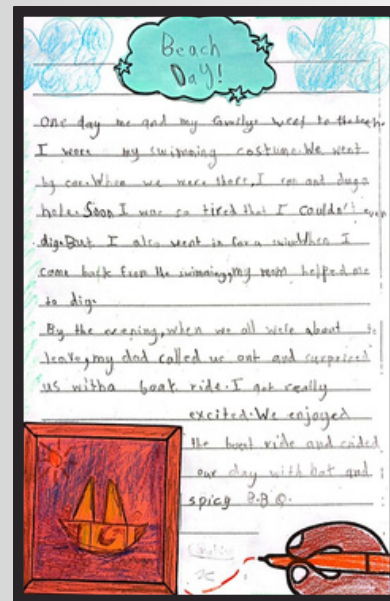 Beach
Day!
One day me and my family went to the beach.
I wore my swimming costume. We went
by car. When we were there, I ran and dug a
hole. Soon I was so tired that I couldn't even
dig. But I also went in for a swim. When I
came back from the swimming, my mom helped me
to dig.
By the evening, when we all were about to
leave, my dad called us out and surprised
us with a boat ride. I got really
excited. We enjoyed
the boat ride and ended
our day with hot and
spicy B.B.Q.